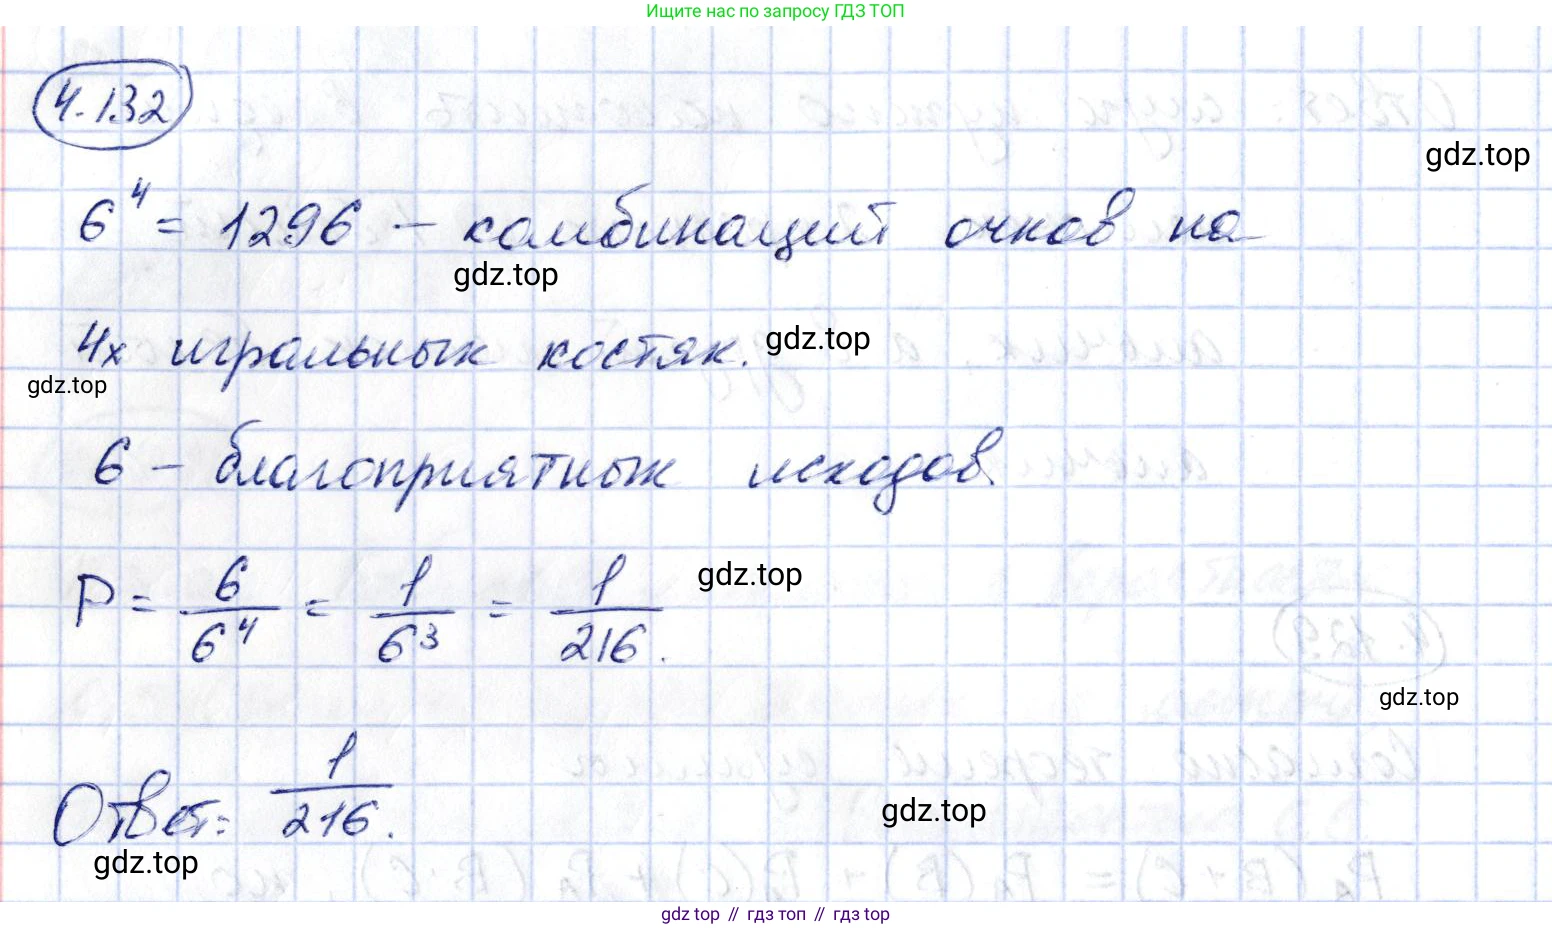 Ищите нас по запросу ГДЗ ТОП
4.132
gdz.top
6⁴ = 1296 – комбинаций очков на
gdz.top
4х игральных костях.
gdz.top
gdz.top
6 – благоприятных исходов.
P = 6/6⁴ = 1/6³ = 1/216.
gdz.top
gdz.top
Ответ: 1/216.
gdz.top
gdz.top
gdz top // гдз топ // gdz top